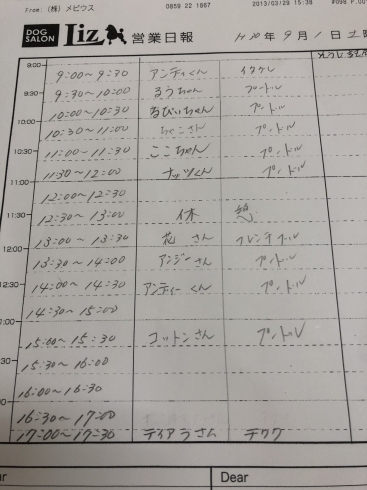 From: (株) メビウス 0859 22 1667 2013/03/29 15:39 #098 P.001
DOG SALON Liz 営業日報 H20年9月1日
9:00 9:00～9:30 アンディくん イタグレ
9:30 9:30～10:00 るうちゃん プードル
10:00 10:00～10:30 るびぃちゃん プードル
10:30 10:30～11:00 プードル
11:00～11:30 ここちゃん プードル
11:00 11:30～12:00 ナッツくん プードル
12:00～12:30
11:30 12:30～13:00 休 憩
12:00 13:00～13:30 花さん フレンチブル
13:30～14:00 アンジーさん プードル
12:30 14:00～14:30 アンディーくん プードル
14:30～15:00
15:00～15:30 コットンさん プードル
15:30～16:00
16:00～16:30
16:30～17:00
17:00～17:30 ティアラさん チワワ
Dear